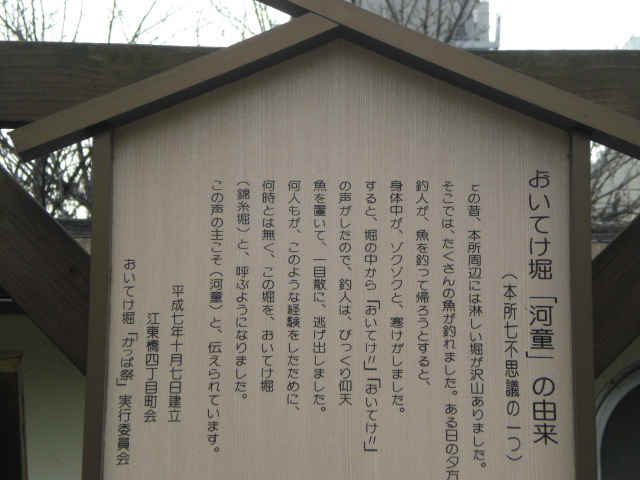 おいてけ堀「河童」の由来
(本所七不思議の一つ)
その昔、本所周辺には淋しい堀が沢山ありました。
そこでは、たくさんの魚が釣れました。ある日の夕方
釣人が、魚を釣って帰ろうとすると、
身体中が、ゾクゾクと、寒けがしました。
すると、堀の中から「おいてけ!!」「おいてけ!!」
の声がしたので、釣人は、びっくり仰天
魚を置いて、一目散に、逃げ出しました。
何人もが、このような経験をしたために、
何時とは無く、この堀を、おいてけ堀
(錦糸堀)と、呼ぶようになりました。
この声の主こそ(河童)と、伝えられています。
平成七年十月七日建立
江東橋四丁目町会
おいてけ堀「かっぱ祭」実行委員会